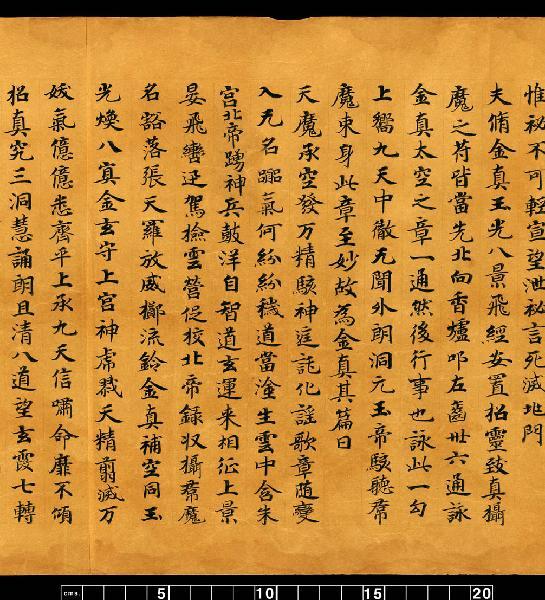 惟祕不可輕宣望泄祕言死滅地門
夫脩金真玉光八景飛經安置招靈致真攝
魔之苻皆當先北向香爐叩左齒卅六通詠
金真太空之章一通然後行事也詠此一句
上嚮九天中徹无聞外朗洞元玉帝駭聽羣
魔束身此章至妙故為金真其篇曰
天魔承空發万精駭神庭託化謡歌章随變
入无名氣何紛紛穢道當塗生雲中含朱
宮北帝踴神兵皷洋自智道玄運来相征上景
晏飛轡迅駕撿雲營促挍北帝録収攝羣魔
名豁落張天羅放威擲流鈴金真補空同玉
光煥八寘金玄守上宮神虎戮天精翦滅万
妖氣億億悉齊平上承九天信嘯命靡不傾
招真究三洞慧誦朗且清八道望玄霞七轉